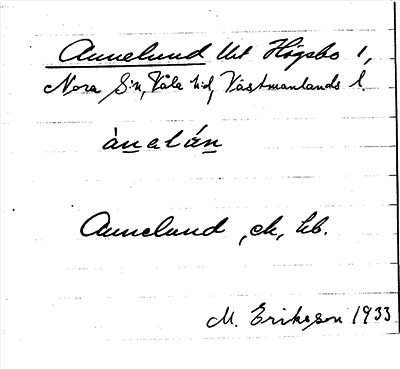 Annelund Ut Högsbo 1,
Nora Sn, Våla hd, Västmanlands l.
ànalán
Annelund, ek, kb.
M. Eriksson 1933